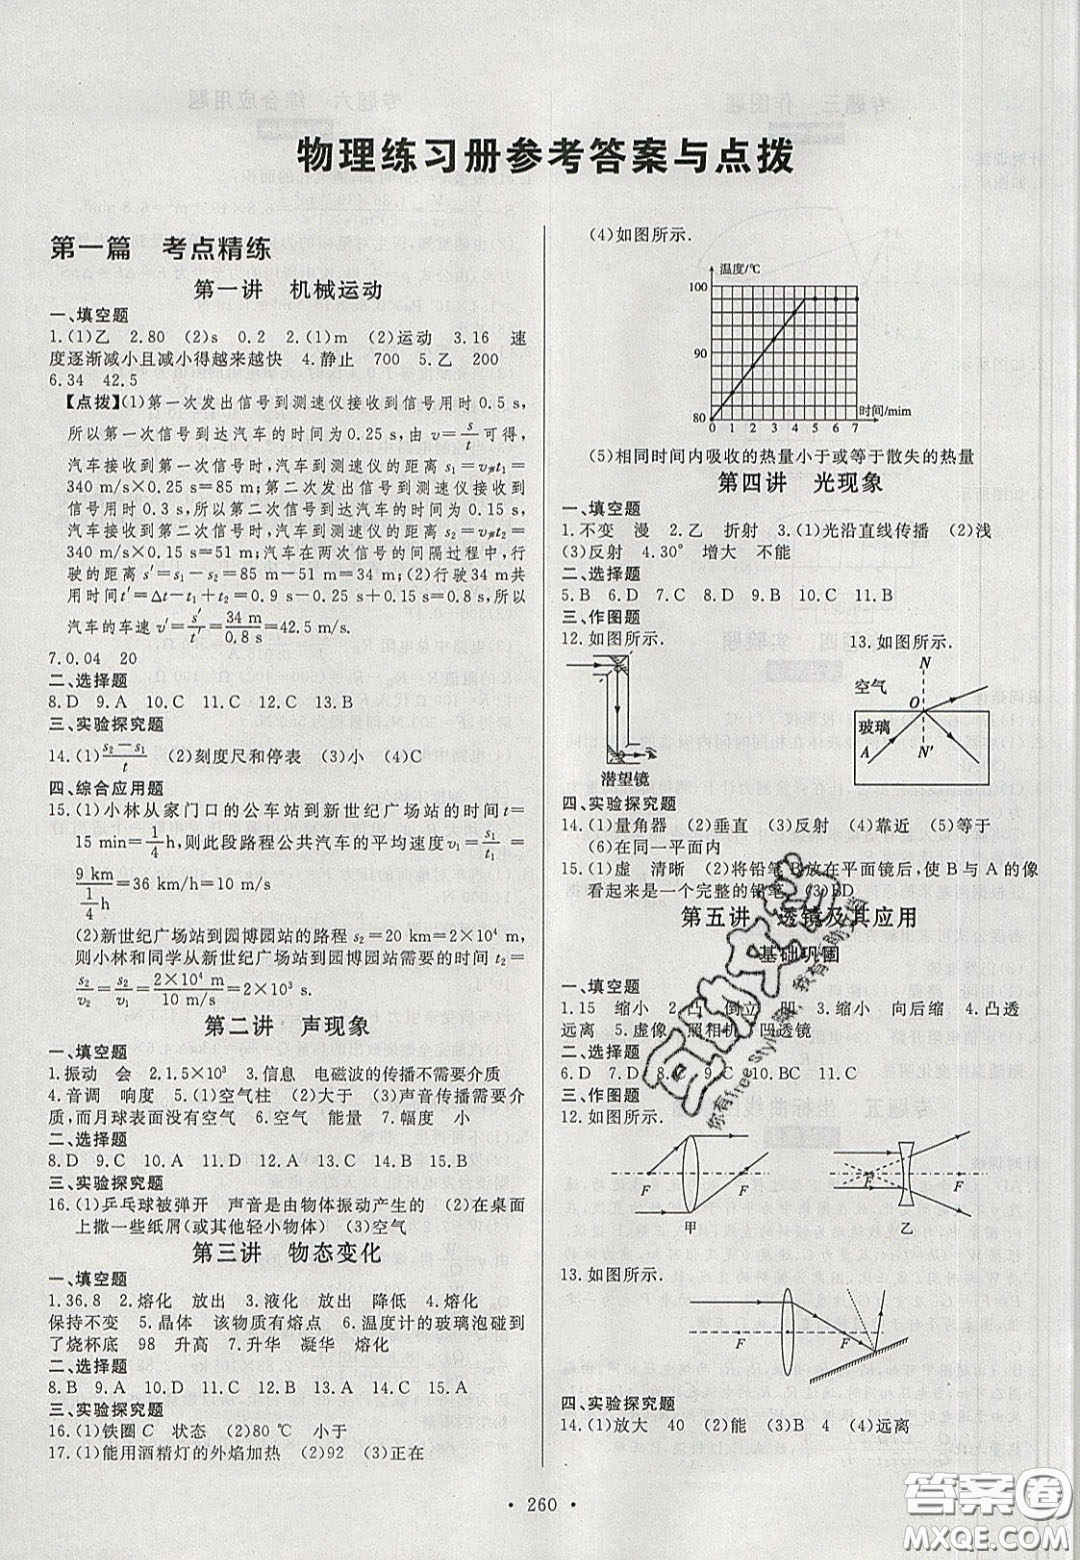 物理练习册参考答案与点拨
第一篇 考点精练
第一讲 机械运动
一、填空题
1.(1)乙 2.80 (2)s 0.2 2.(1)m (2)运动 3.16 速
度逐渐减小且减小得越来越快 4.静止 700 5.乙 200
6.34 42.5
【点拨】(1)第一次发出信号到测速仪接收到信号用时0.5 s,
所以第一次信号到达汽车的时间为0.25 s,由v=s/t可得,
汽车接收到第一次信号时,汽车到测速仪的距离s₁=v声t₁=
340 m/s×0.25 s=85 m;第二次发出信号到测速仪接收到
信号用时0.3 s,所以第二次信号到达汽车的时间为0.15 s,
汽车接收到第二次信号时,汽车到测速仪的距离s₂=v声t₂=
340 m/s×0.15 s=51 m;汽车在两次信号的间隔过程中,行
驶的距离s′=s₁-s₂=85 m-51 m=34 m;(2)行驶34 m共
用时t′=Δt-t₁+t₂=0.9 s-0.25 s+0.15 s=0.8 s,所以
汽车的车速v′=s′/t′=34 m/0.8 s=42.5 m/s.
7.0.04 20
二、选择题
8.D 9.A 10.C 11.C 12.C 13.B
三、实验探究题
14.(1)(s₂-s₁)/t (2)刻度尺和停表 (3)小 (4)C
四、综合应用题
15.(1)小林从家门口的公车站到新世纪广场站的时间t=
15 min=1/4 h,则此段路程公共汽车的平均速度v₁=s₁/t₁=
9 km/(1/4 h)=36 km/h=10 m/s
(2)新世纪广场站到园博园站的路程s₂=20 km=2×10⁴ m,
则小林和同学从新世纪广场站到园博园站需要的时间t=
s₂/v₂=s₂/v₁=2×10⁴ m/10 m/s=2×10³ s
第二讲 声现象
一、填空题
1.振动 会 2.1.5×10³ 3.信息 电磁波的传播不需要介质
4.音调 响度 5.(1)空气柱 (2)大于 (3)声音传播需要介
质,而月球表面没有空气 6.空气 能量 7.幅度 小
二、选择题
8.D 9.C 10.A 11.D 12.A 13.C 14.C 15.A
三、实验探究题
16.(1)乒乓球被弹开 声音是由物体振动产生的 (2)在桌面
上撒一些纸屑(或其他轻小物体) (3)空气
第三讲 物态变化
一、填空题
1.36.8 2.熔化 放出 3.液化 放出 降低 4.熔化
保持不变 5.晶体 该物质有熔点 6.温度计的玻璃泡碰到
了烧杯底 98 升高 7.升华 凝华 熔化
二、选择题
8.B 9.A 10.C 11.D 12.A 13.C 14.C 15.A
三、实验探究题
16.(1)铁圈C 状态 (2)80 ℃ 小于
17.(1)能用酒精灯的外焰加热 (2)92 (3)正在
(4)如图所示.
温度/℃
100
90
80
0 1 2 3 4 5 6 7
时间/mim
(5)相同时间内吸收的热量小于或等于散失的热量
第四讲 光现象
一、填空题
1.不变 漫 2.乙 折射 3.(1)光沿直线传播 (2)浅
(3)反射 4.30° 增大 不能
二、选择题
5.B 6.D 7.C 8.D 9.B 10.C 11.B
三、作图题
12.如图所示. 13.如图所示.
潜望镜
空气
玻璃
N
O
A
N′
四、实验探究题
14.(1)量角器 (2)垂直 (3)反射 (4)靠近 (5)等于
(6)在同一平面内
15.(1)虚 清晰 (2)将铅笔B放在平面镜后,使B与A的像
看起来是一个完整的铅笔 (3)BD
第五讲 透镜及其应用
基础巩固
一、填空题
1.15 缩小 2.凸 倒立 凹 3.缩小 向后缩 4.凸透
远离 5.虚像 照相机 凹透镜
二、选择题
6.D 7.D 8.C 9.C 10.BC 11.C
三、作图题
12.如图所示.
F F
甲
F F
乙
13.如图所示.
F F
四、实验探究题
14.(1)放大 40 (2)能 (3)B 4 (4)远离
· 260 ·
互助文档
你有free style嘞,我有互助文档
答案圈
MXQE.COM